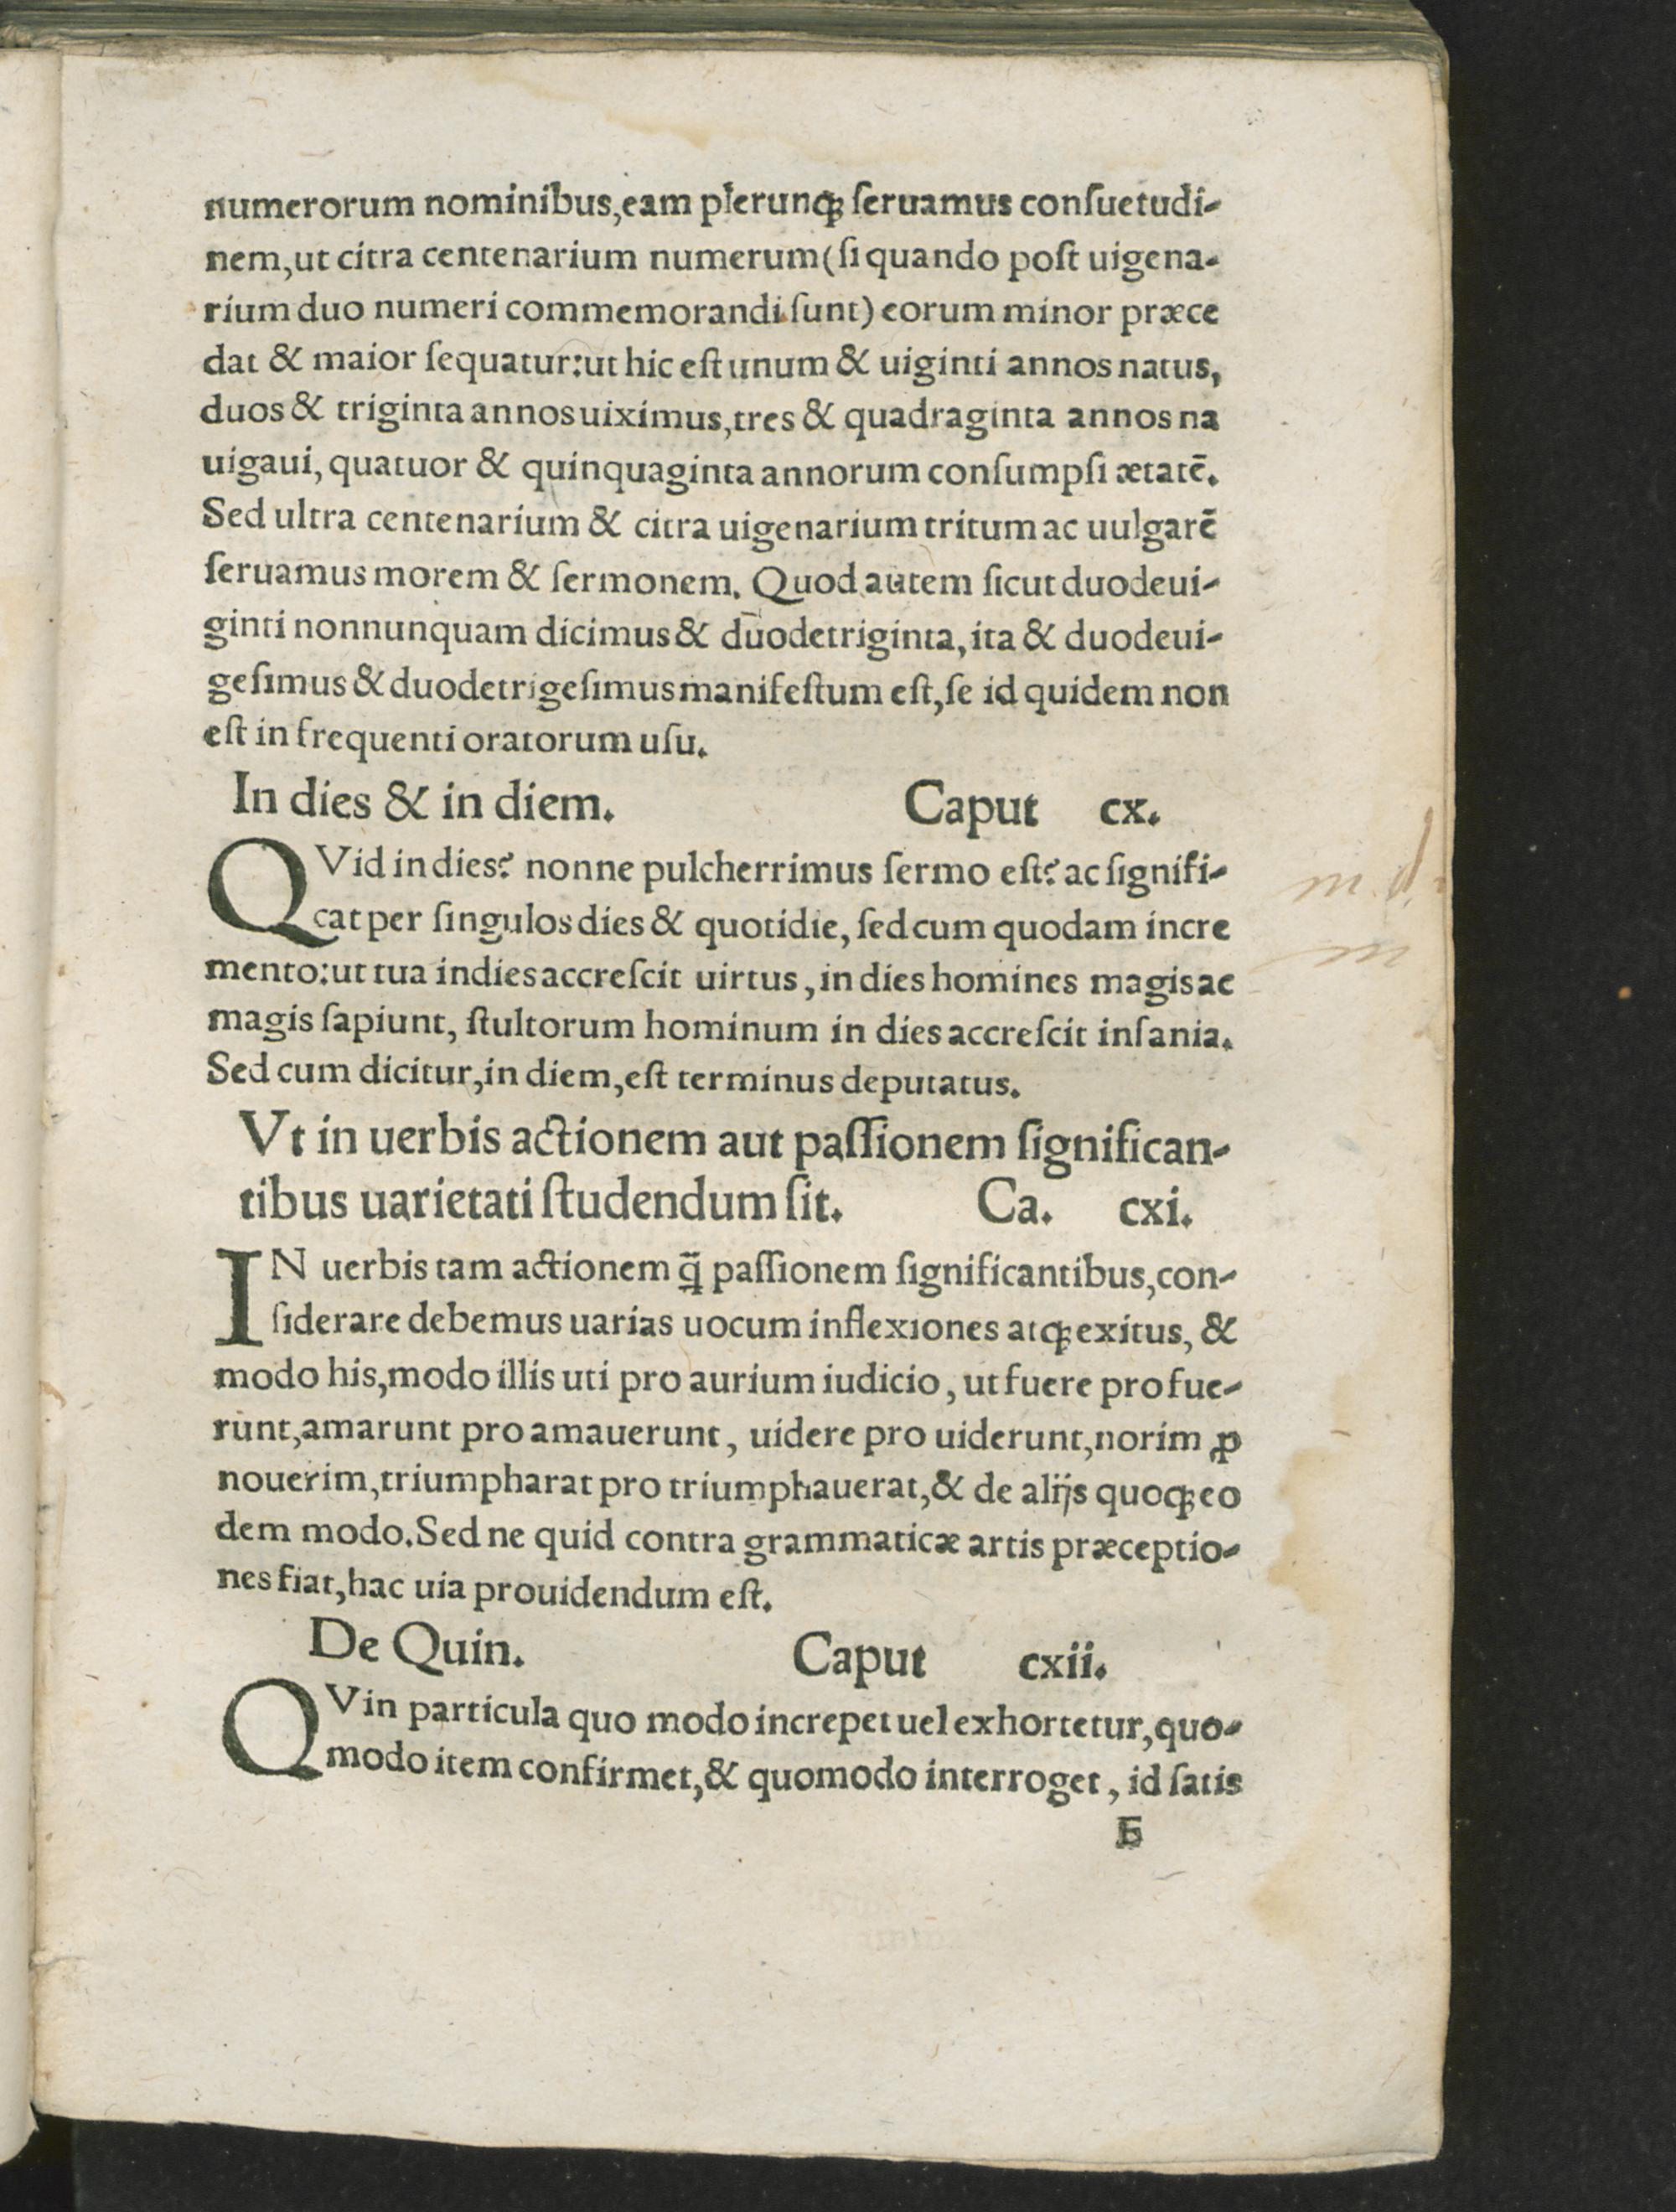 numerorum nominibus,eam plerunqꝫ ſeruamus conſuetudi-
nem,ut citra centenarium numerum(ſi quando poſt uigena-
rium duo numeri commemorandi ſunt) eorum minor præce
dat & maior ſequatur:ut hic eſt unum & uiginti annos natus,
duos & triginta annos uiximus,tres & quadraginta annos na
uigaui, quatuor & quinquaginta annorum conſumpſi ætatē.
Sed ultra centenarium & citra uigenarium tritum ac uulgarē
ſeruamus morem & ſermonem. Quod autem ſicut duodeui-
ginti nonnunquam dicimus & duodetriginta, ita & duodeui-
geſimus & duodetrigeſimus manifeſtum eſt,ſe id quidem non
eſt in frequenti oratorum uſu.
In dies & in diem. Caput cx.
QVid in dies? nonne pulcherrimus ſermo eſt? ac ſignifi-
cat per ſingulos dies & quotidie, ſed cum quodam incre
mento:ut tua indies accreſcit uirtus, in dies homines magis ac
magis ſapiunt, ſtultorum hominum in dies accreſcit inſania.
Sed cum dicitur,in diem,eſt terminus deputatus.
Vt in uerbis actionem aut paſſionem ſignifican-
tibus uarietati ſtudendum ſit. Ca. cxi.
IN uerbis tam actionem q̃ paſſionem ſignificantibus,con-
ſiderare debemus uarias uocum inflexiones atqꝫ exitus, &
modo his,modo illis uti pro aurium iudicio, ut fuere pro fue-
runt,amarunt pro amauerunt, uidere pro uiderunt,norim ꝓ
nouerim,triumpharat pro triumphauerat,& de alijs quoqꝫ eo
dem modo.Sed ne quid contra grammaticæ artis præceptio-
nes fiat,hac uia prouidendum eſt.
De Quin. Caput cxii.
QVin particula quo modo increpet uel exhortetur,quo-
modo item confirmet,& quomodo interroget, id ſatis